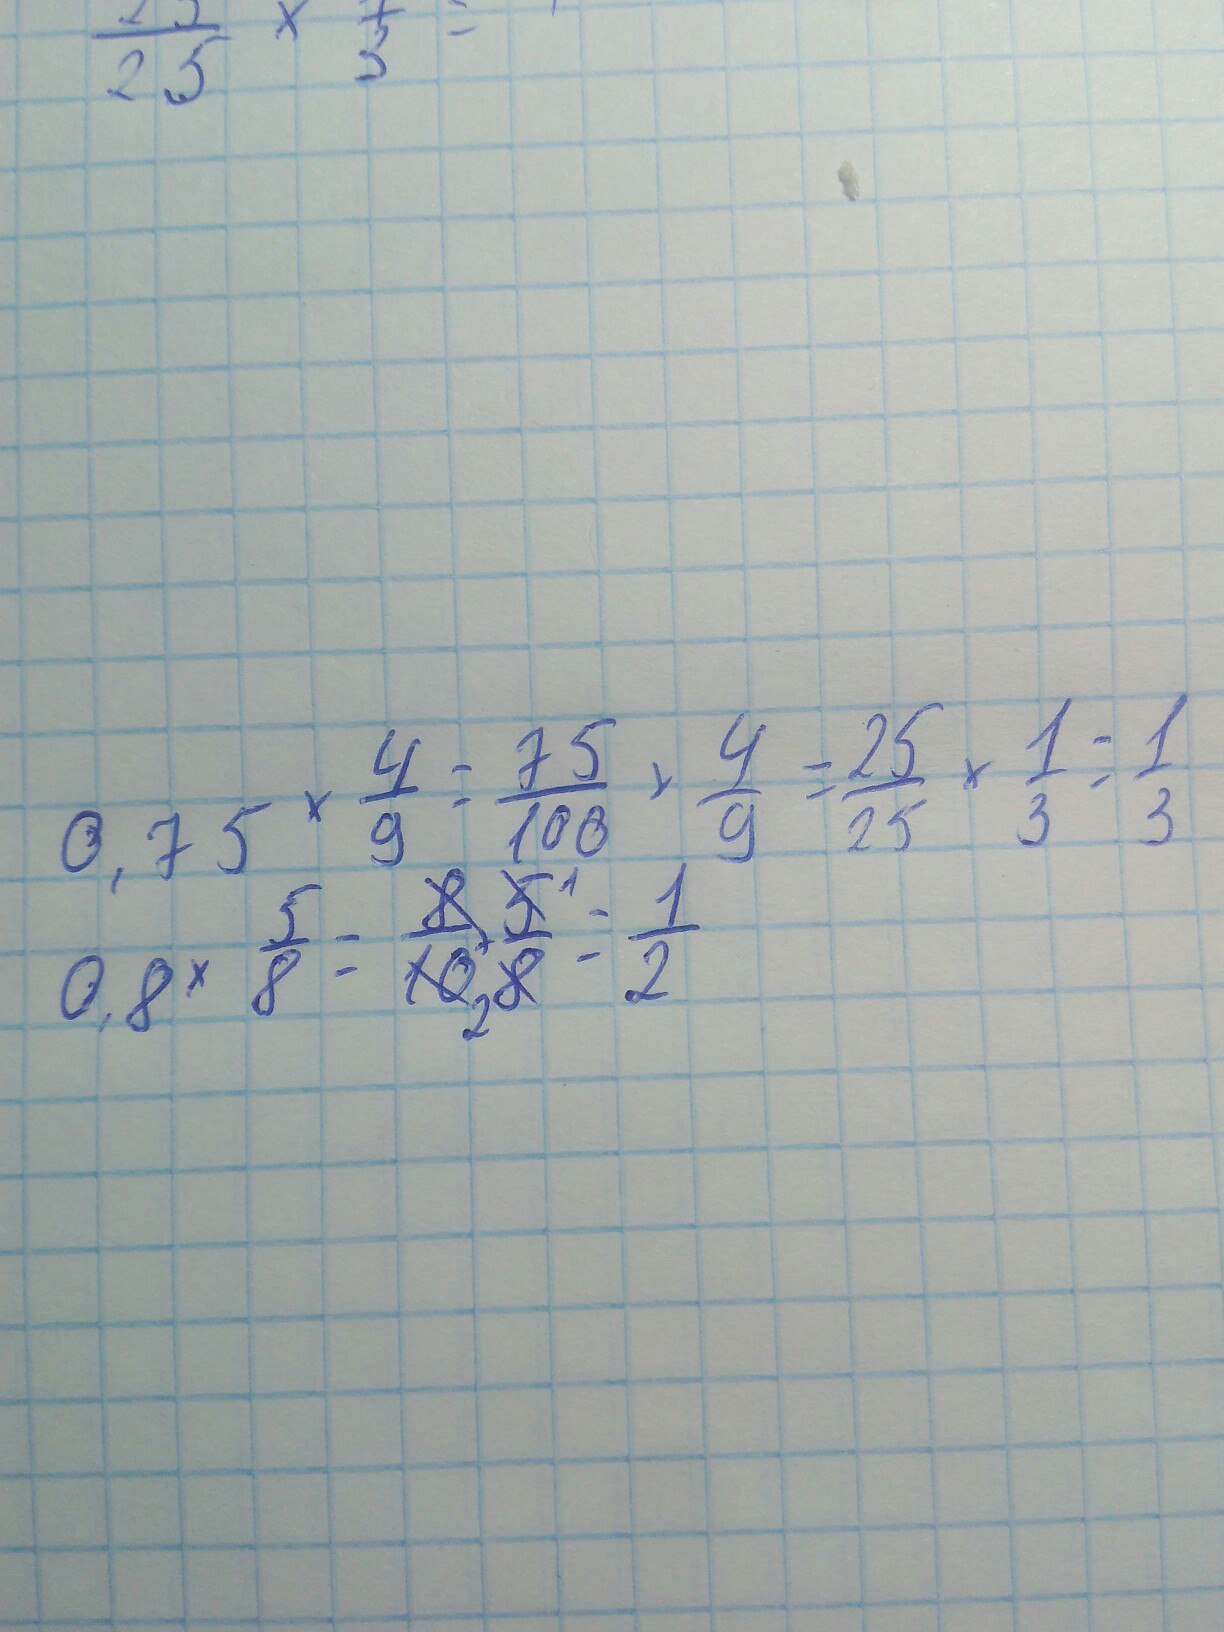 25/25 × 1/3 =
0,75 × 4/9 = 75/100 × 4/9 = 25/25 × 1/3 = 1/3
0,8 × 5/8 = 8/10 2 · 5/8 1 = 1/2